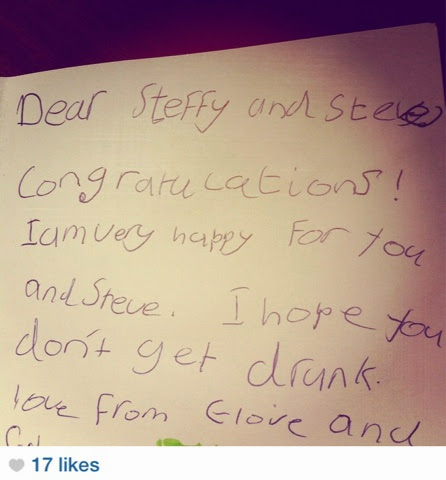 Dear Steffy and Steve
Congratulations!
I am very happy For you
and Steve. I hope you
don't get drunk.
love from and
17 likes